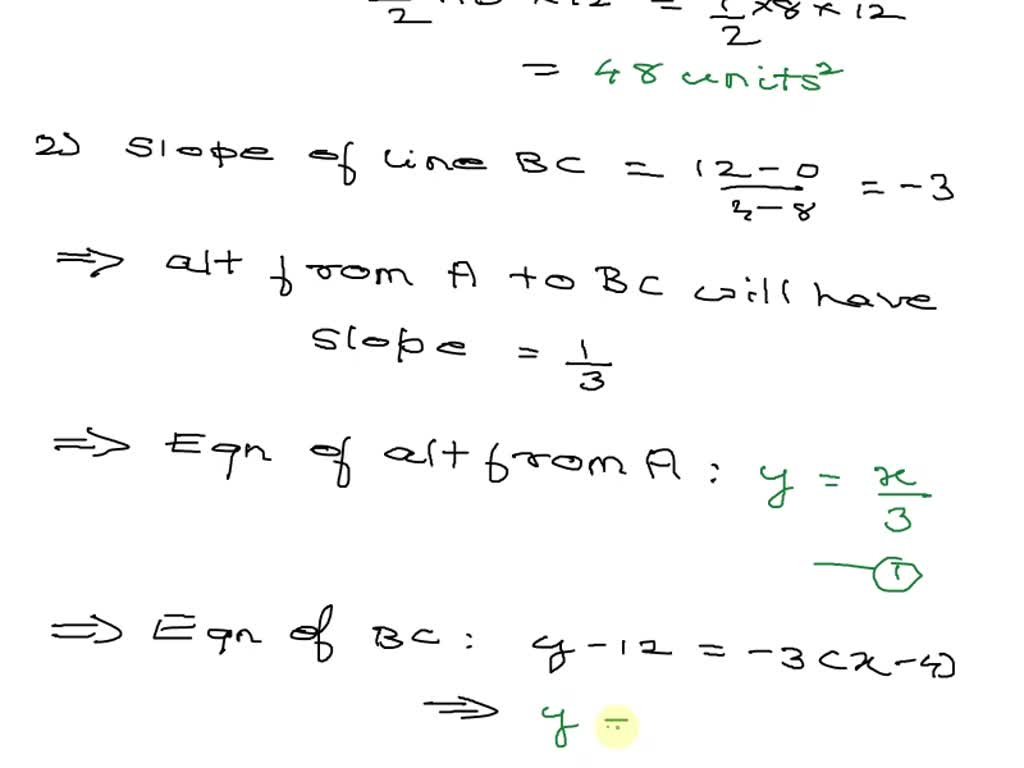 2 × 12 = 1/2 × 8 × 12
= 48 units²
2) Slope of line BC = 12 - 0 / 4 - 8 = -3
⇒ alt from A to BC will have
slope = 1/3
⇒ Eqn of alt from A : y = x/3
1
⇒ Eqn of BC : y - 12 = -3(x - 4)
⇒ y =